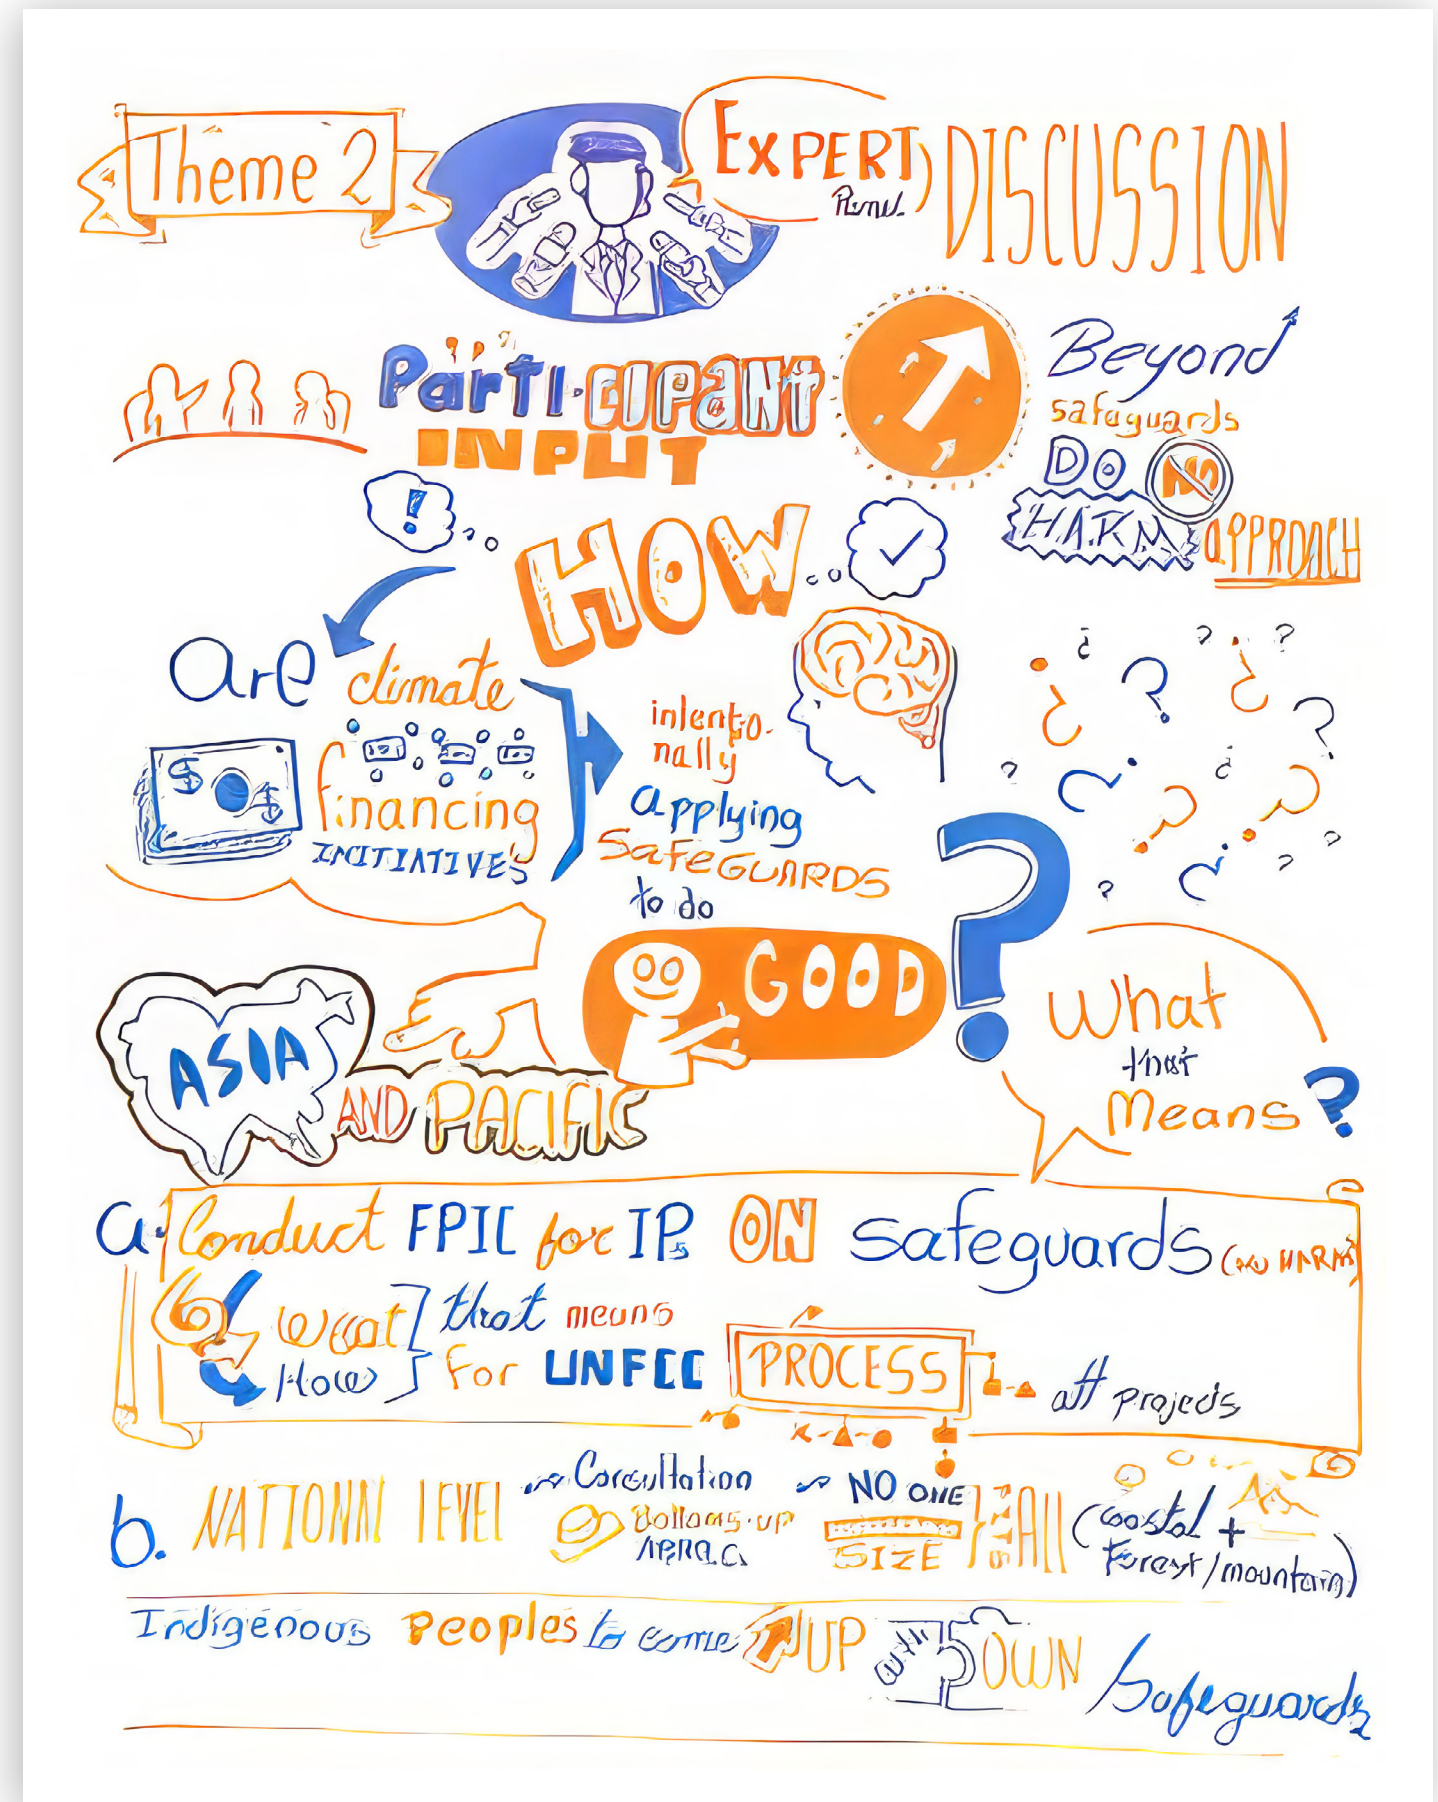 Theme 2
EXPERT
Panel
DISCUSSION
PARTICIPANT
INPUT
Beyond
safeguards
DO NO
HARM APPROACH
!
HOW
are climate
$ $
financing
INITIATIVES
intentio-
nally
applying
SafeGUARDS
to do
GOOD
?
What
that
Means?
ASIA
AND PACIFIC
a. Conduct FPIC for IPs ON Safeguards (NO HARM)
What
How
that means
for UNFCC
PROCESS
all projects
b. NATIONAL LEVEL
Consultation
Bottoms-up
NO ONE
SIZE
FITS
All
(coastal +
Forest/mountain)
Indigenous Peoples to come UP with OWN
Safeguards